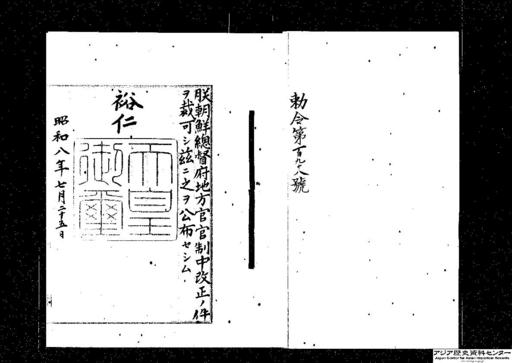 勅令第百九十八號
朕朝鮮總督府地方官官制中改正ノ件
ヲ裁可シ茲ニ之ヲ公布セシム
裕仁
天皇
御璽
昭和八年七月二十五日
アジア歴史資料センター
Japan Center for Asian Historical Records